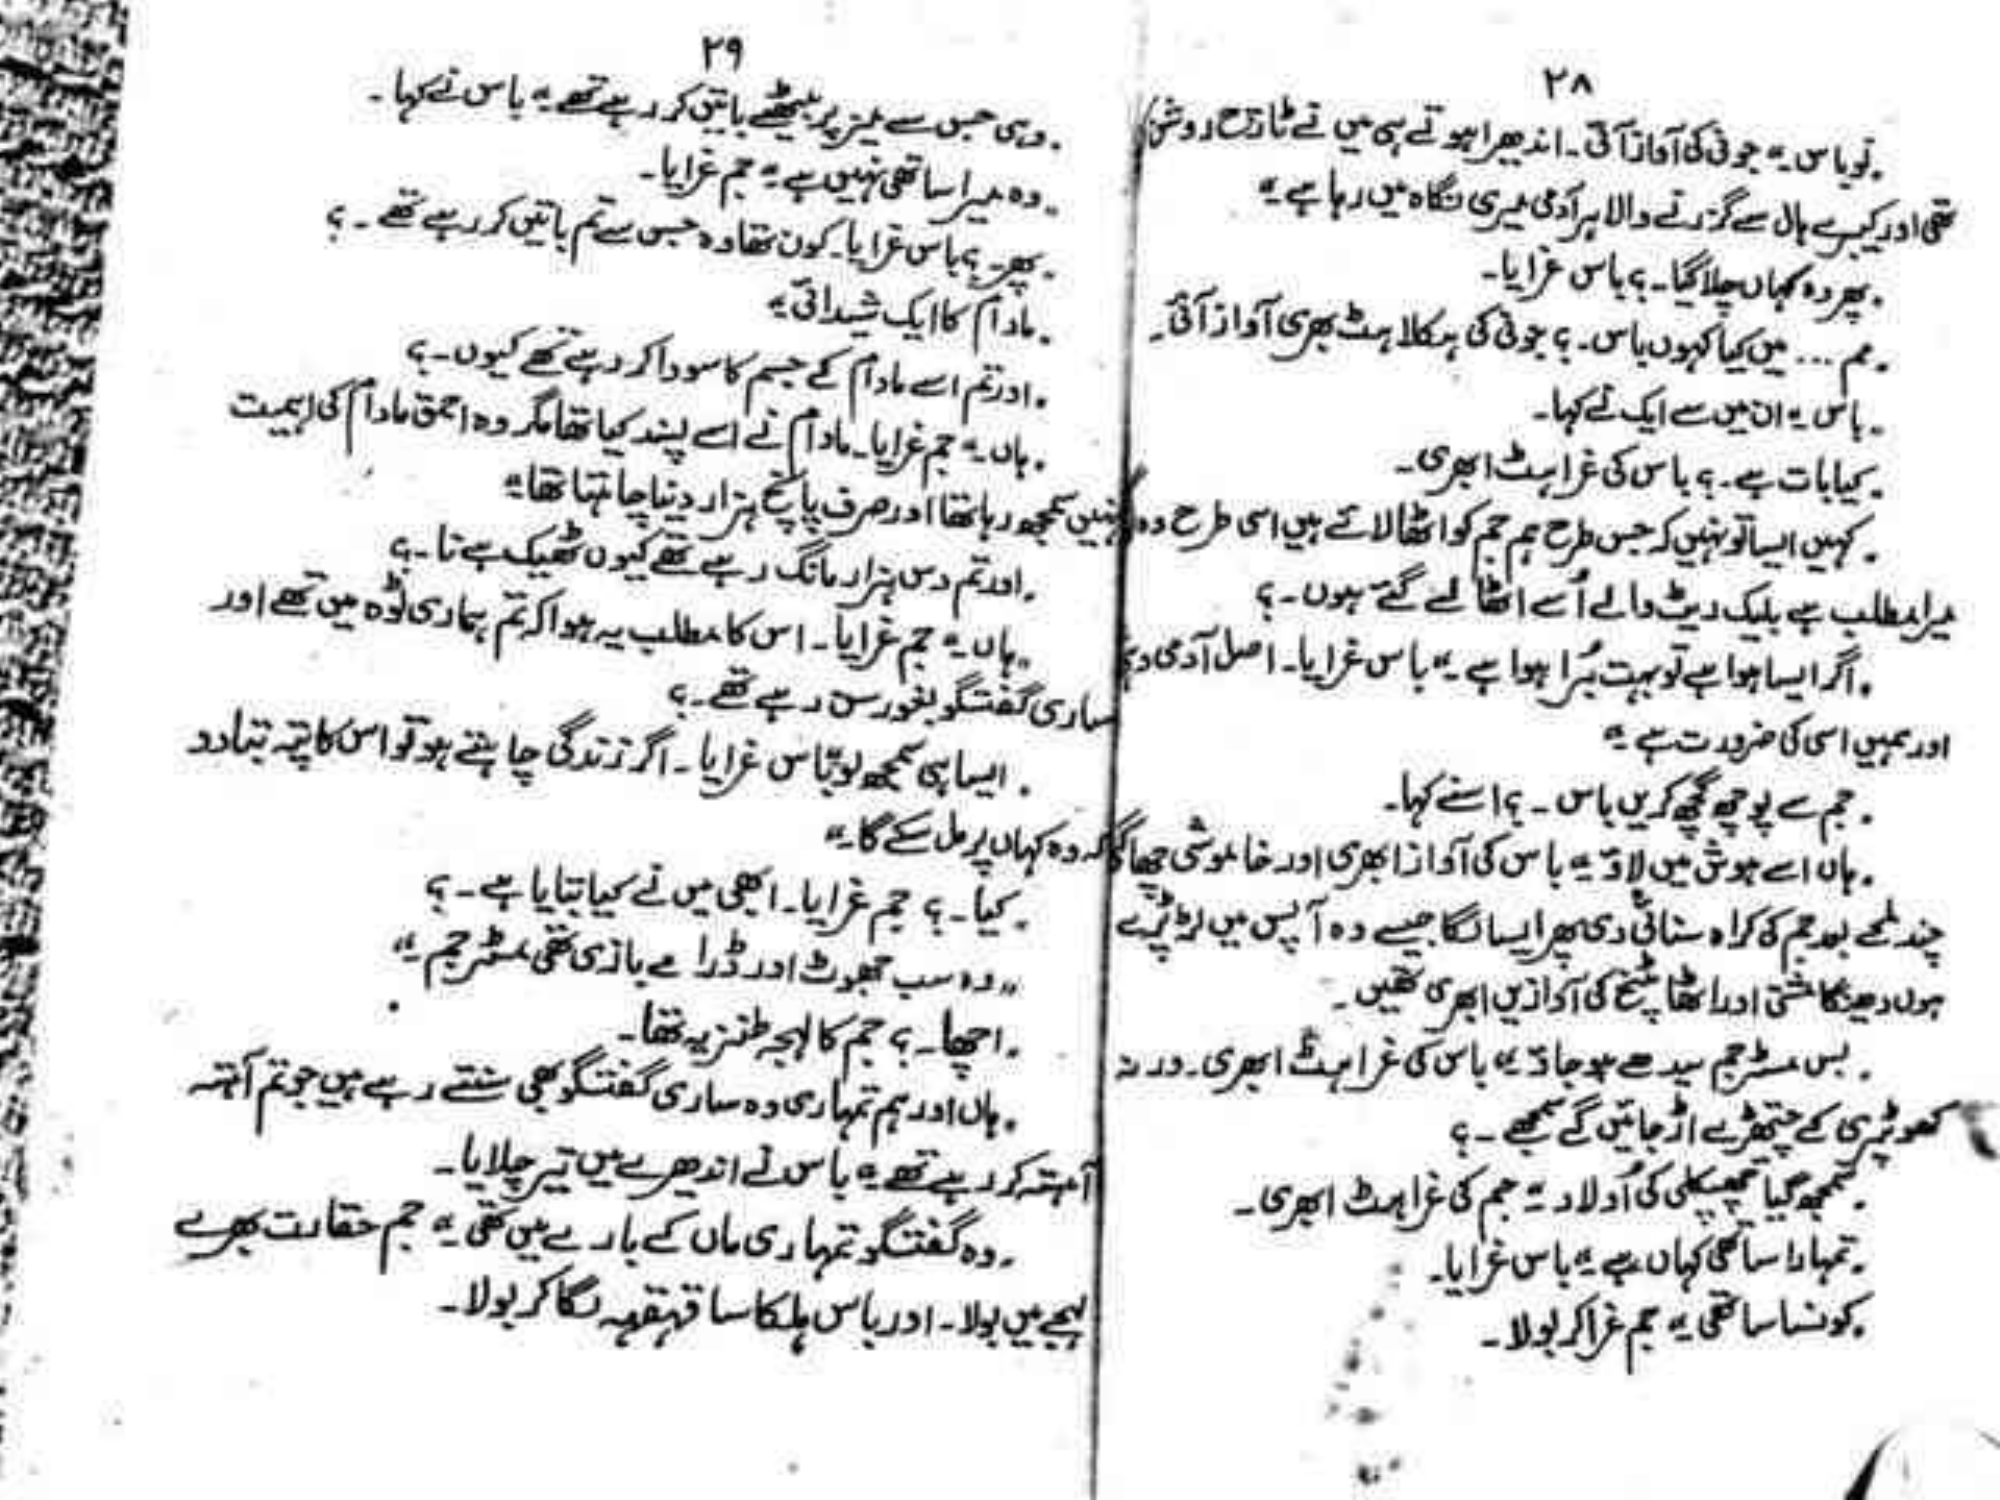 ۲۸
"نو باس" جونی کی آواز آئی۔ اندھیرا ہوتے ہی میں نے ٹارچ روشن
تھی اور کیبرے ہال سے گزرنے والا ہر آدمی میری نگاہ میں رہا ہے"
"پھر وہ کہاں چلا گیا۔؟ باس غرایا۔
"مم ... میں کیا کہوں باس۔؟ جونی کی ہکلاہٹ بھری آواز آئی۔
"باس" ان میں سے ایک نے کہا۔
"کیا بات ہے۔؟ باس کی غراہٹ ابھری۔
"کہیں ایسا تو نہیں کہ جس طرح ہم جم کو اٹھا لائے ہیں اسی طرح وہ
میرا مطلب ہے بلیک ریٹ والے اُسے اٹھا لے گئے ہوں۔؟
"اگر ایسا ہوا ہے تو بہت بُرا ہوا ہے" باس غرایا۔ اصل آدمی وہی
اور ہمیں اسی کی ضرورت ہے"
"جم سے پوچھ گچھ کریں باس۔؟ اسنے کہا۔
"ہاں اسے ہوش میں لاؤ" باس کی آواز ابھری اور خاموشی چھا گئی
چند لمحے بعد جم کی کراہ سنائی دی پھر ایسا لگا جیسے وہ آپس میں لڑ پڑے
ہوں دھینگا مشتی اور اٹھا پٹخ کی آوازیں ابھری تھیں۔
"بس مسٹر جم سیدھے ہو جاؤ" باس کی غراہٹ ابھری۔ ورنہ
کھوپڑی کے چیتھڑے اڑ جائیں گے سمجھے۔؟
"سمجھ گیا چھپکلی کی اُولاد" جم کی غراہٹ ابھری۔
"تمہارا ساتھی کہاں ہے" باس غرایا۔
"کونسا ساتھی" جم غرا کر بولا۔
۲۹
"وہی جس سے میز پر بیٹھے باتیں کر رہے تھے" باس نے کہا۔
"وہ میرا ساتھی نہیں ہے" جم غرایا۔
"پھر۔؟ باس غرایا۔ کون تھا وہ جس سے تم باتیں کر رہے تھے۔؟
"مادام کا ایک شیدائی"
"اور تم اسے مادام کے جسم کا سودا کر رہے تھے کیوں۔؟
"ہاں" جم غرایا۔ مادام نے اسے پسند کیا تھا مگر وہ احمق مادام کی اہمیت
نہیں سمجھ رہا تھا اور صرف پانچ ہزار دینا چاہتا تھا"
"اور تم دس ہزار مانگ رہے تھے کیوں ٹھیک ہے نا۔؟
"ہاں" جم غرایا۔ اس کا مطلب یہ ہوا کہ تم ہماری ٹوہ میں تھے اور
ہماری گفتگو بغور سن رہے تھے۔؟
"ایسا ہی سمجھ لو" باس غرایا۔ اگر زندگی چاہتے ہو تو اس کا پتہ بتا دو
کہ وہ کہاں پر مل سکے گا"
"کیا۔؟ جم غرایا۔ ابھی میں نے کیا بتایا ہے۔؟
"وہ سب جھوٹ اور ڈرامے بازی تھی مسٹر جم"
"اچھا۔؟ جم کا لہجہ طنزیہ تھا۔
"ہاں اور ہم تمہاری وہ ساری گفتگو بھی سنتے رہے ہیں جو تم آہستہ
آہستہ کر رہے تھے" باس نے اندھرے میں تیر چلایا۔
"وہ گفتگو تمہاری ماں کے بارے میں تھی" جم حقارت بھرے
لہجے میں بولا۔ اور باس ہلکا سا قہقہہ لگا کر بولا۔